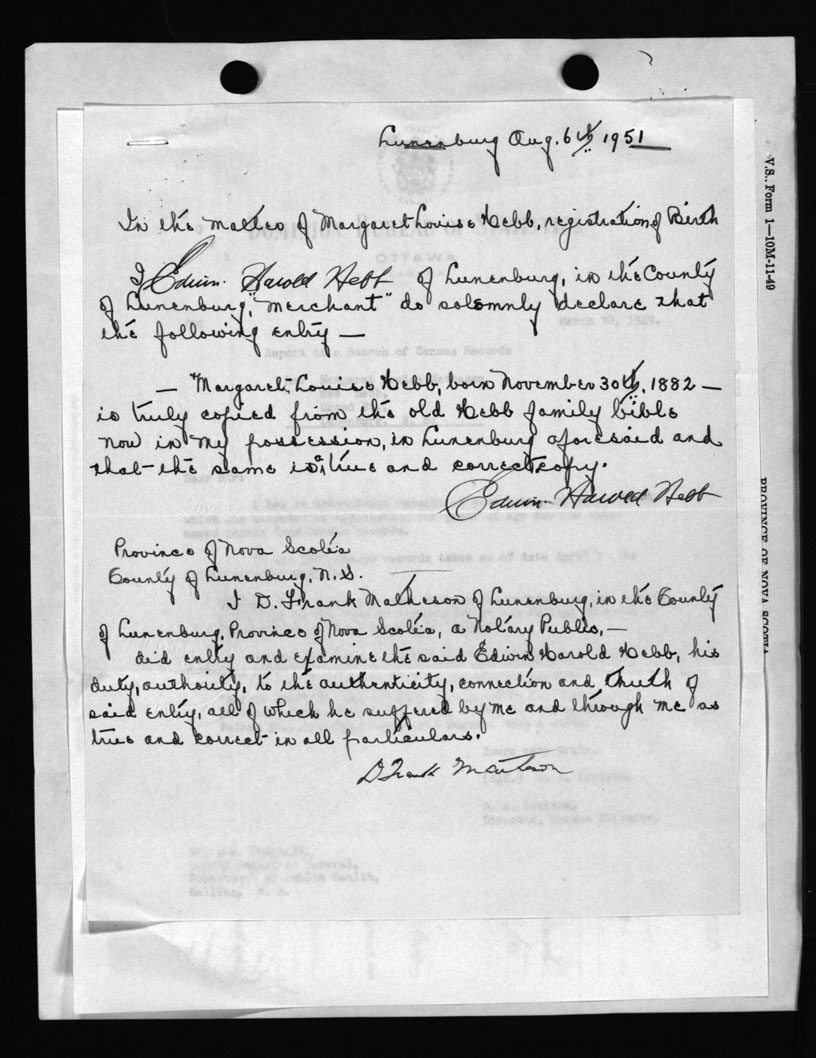 Lunenburg Aug. 6th, 1951
In the matter of Margaret Louise Hebb, registration of Birth
DOMINION BUREAU OF STATISTICS
OTTAWA
CANADA
I Edwin Harold Hebb of Lunenburg, in the County
of Lunenburg, "merchant" do solemnly declare that
the following entry —
March 30, 1949.
Report on a Search of Census Records
— "Margaret Louise Hebb, born November 30th, 1882 —
is truly copied from the old Hebb family bible
now in my possession, in Lunenburg aforesaid and
that the same is a true and correct copy.
Edwin Harold Hebb
Province of Nova Scotia
County of Lunenburg, N.S.
I D. Frank Matheson of Lunenburg, in the County
of Lunenburg, Province of Nova Scotia, a Notary Public, —
did entry and examine the said Edwin Harold Hebb, his
duty, authority, to the authenticity, connection and truth of
said entry, all of which he suffered by me and through me as
true and correct in all particulars.
D Frank Matheson
Halifax, N. S.
V.S., Form 1—10M-11-49
PROVINCE OF NOVA SCOTIA